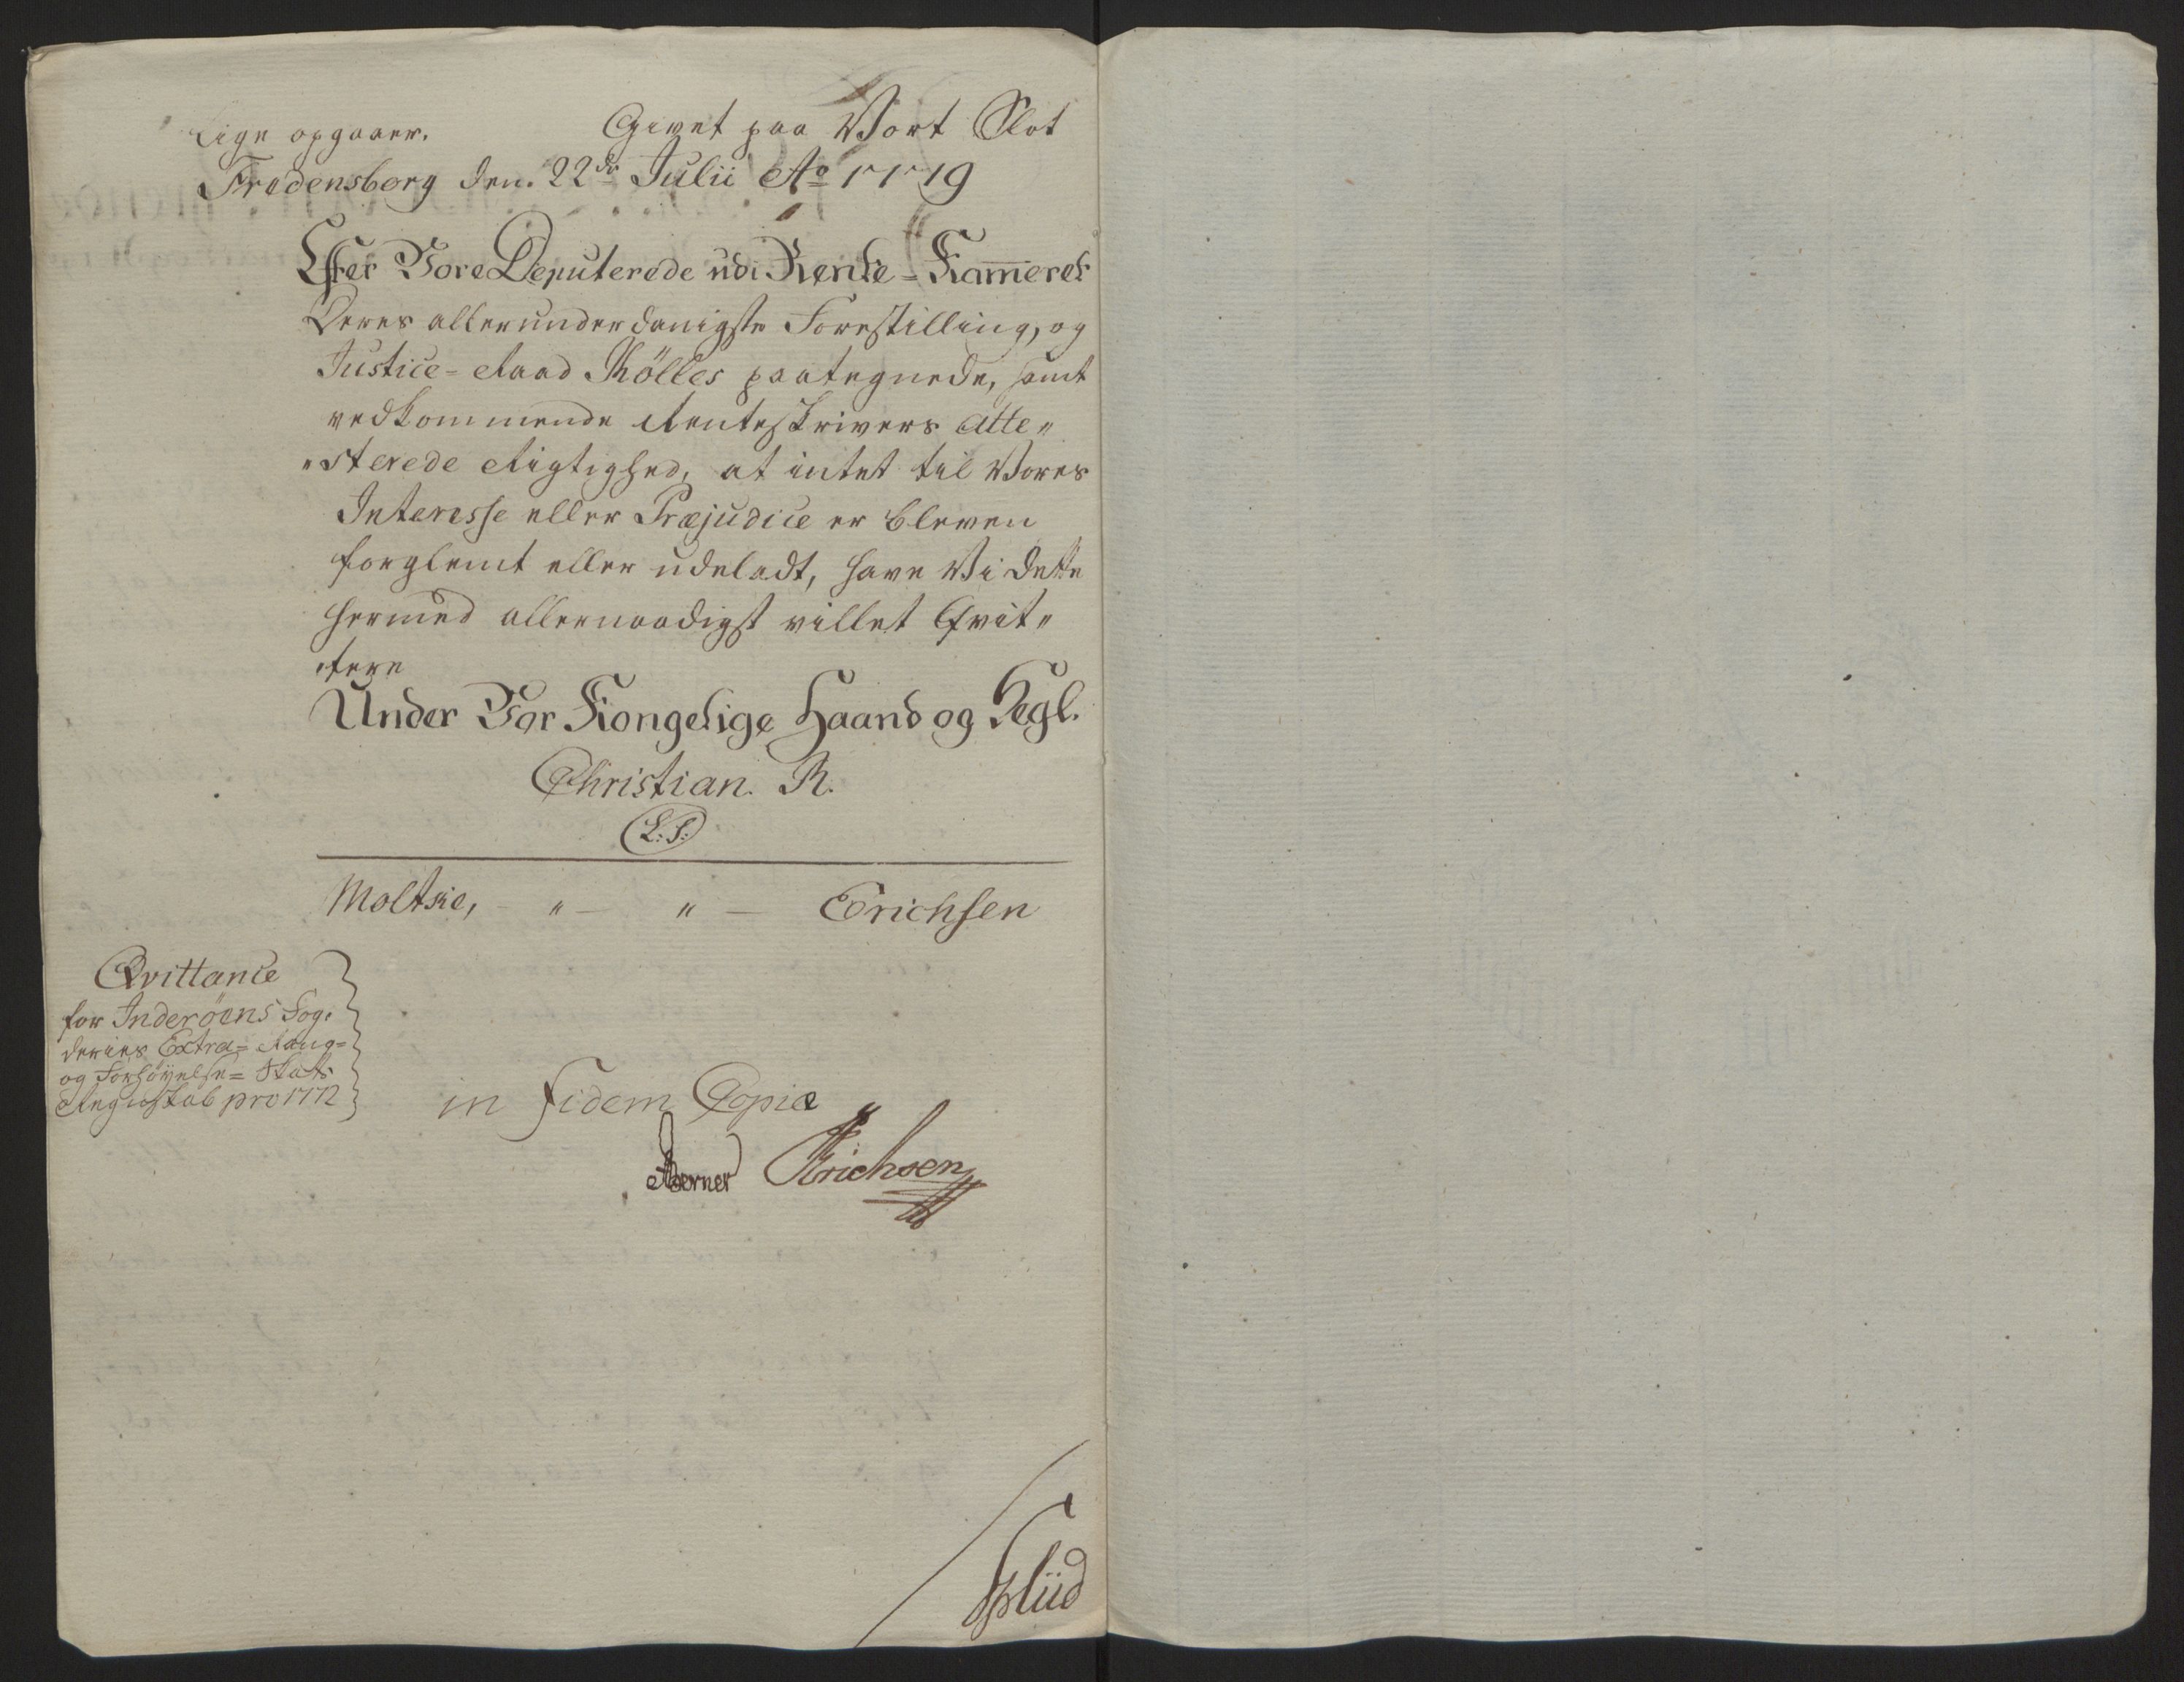 lige opgaaer. Givet paa Vort Slot
Fredensborg den. 22de Julii Ao 1779
Efter Vore Deputerede udi Rente-Kam̅eret
Deres allerunderdanigste Forestilling, og
Justice-Raad Kölles paategnede, samt
vedkommende Renteskrivers Atte„
„sterede Rigtighed, at intet til Vores
Interesse eller Præjudice er bleven
forglemt eller udeladt, have Vi dette
hermed allernaadigst villet Qvit„
„tere
Under Vor Kongelige Haand og Segl.
Christian. R.
(L:S:)
Moltkie, - „ - „ - Erichsen
Qvittance
for Inderöens Fog.
deries Extra= Rang=
og Forhöyelse= Skatts
Regnskab pro 1772
in fidem Copiæ
Berner Erichsen